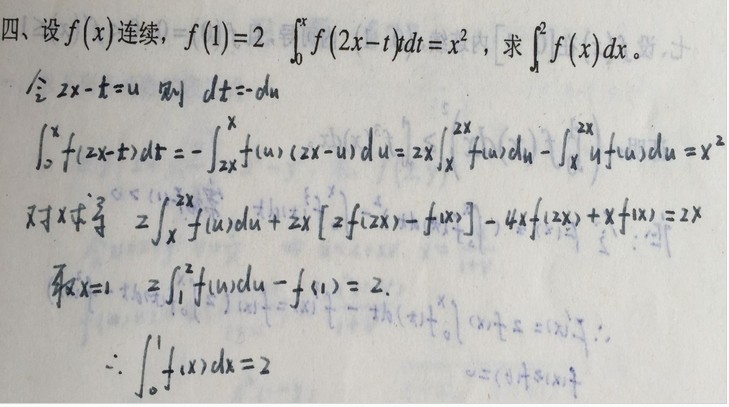 四、设 f(x) 连续, f(1)=2 ∫₀ˣ f(2x-t)tdt = x², 求 ∫₁² f(x)dx。
令 2x-t=u 则 dt=-du
∫₀ˣ f(2x-t)dt = -∫₂ₓˣ f(u)(2x-u)du = 2x∫ₓ²ˣ f(u)du - ∫ₓ²ˣ uf(u)du = x²
对x求导 2∫ₓ²ˣ f(u)du + 2x[2f(2x)-f(x)] - 4xf(2x) + xf(x) = 2x
取x=1 2∫₁² f(u)du - f(1) = 2.
∴ ∫₀¹ f(x)dx = 2